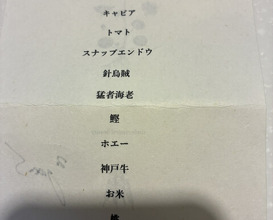 キャビア
トマト
スナップエンドウ
針烏賊
猛者海老
鰹
ホエー
神戸牛
お米